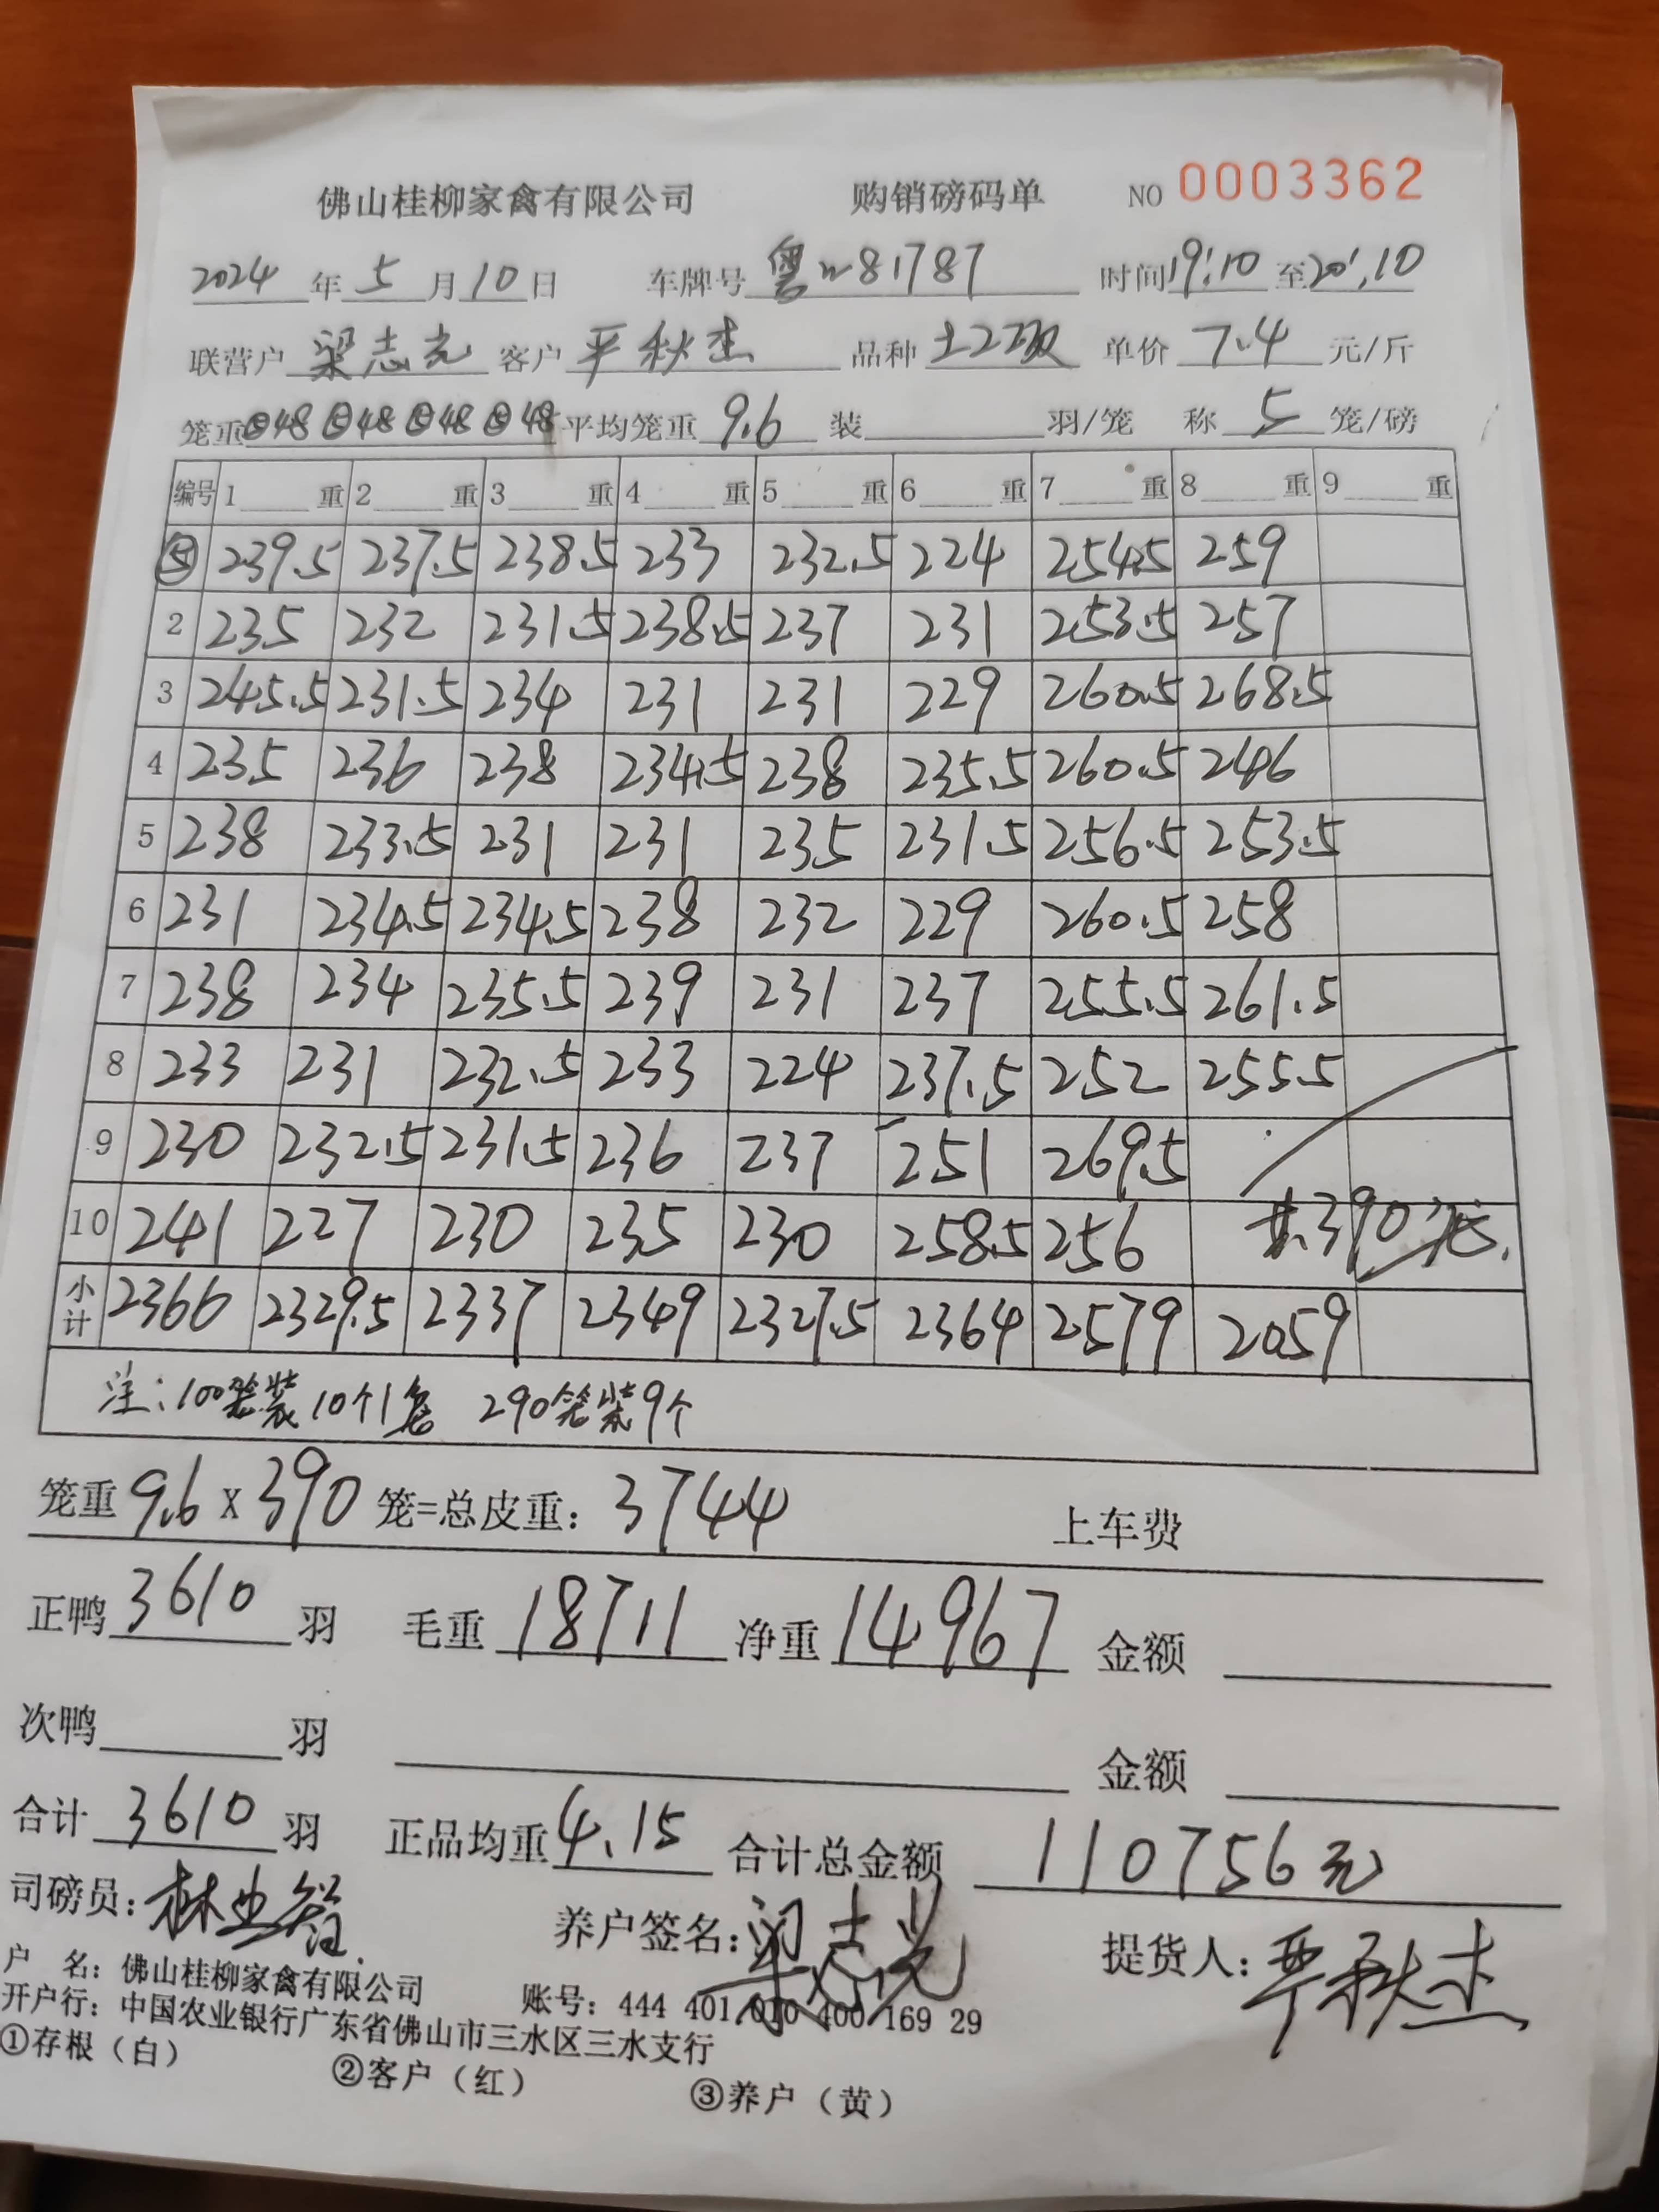 佛山桂柳家禽有限公司 购销磅码单 NO 0003362
2024 年 5 月 10 日 车牌号 粤W81787 时间 19:10 至 20:10
联营户 梁志光 客户 严秋杰 品种 土2双 单价 7.4 元/斤
笼重 ⑤48 ⑤48 ⑤48 ⑤48 平均笼重 9.6 装 羽/笼 称 5 笼/磅
编号 1 重 2 重 3 重 4 重 5 重 6 重 7 重 8 重 9 重
⑤ 239.5 237.5 238.5 233 232.5 224 254.5 259
2 235 232 231.5 238.5 237 231 253.5 257
3 245.5 231.5 234 231 231 229 260.5 268.5
4 235 236 238 234.5 238 235.5 260.5 246
5 238 233.5 231 231 235 231.5 256.5 253.5
6 231 234.5 234.5 238 232 229 260.5 258
7 238 234 235.5 239 231 237 255.5 261.5
8 233 231 232.5 233 224 237.5 252 255.5
9 230 232.5 231.5 236 237 251 269.5
10 241 227 230 235 230 258.5 256 共390笼.
小计 2366 2329.5 2337 2349 2327.5 2364 2579 2059
注:100笼装10个1笼 290笼装9个
笼重 9.6 x 390 笼=总皮重: 3744 上车费
正鸭 3610 羽 毛重 18711 净重 14967 金额
次鸭 羽 金额
合计 3610 羽 正品均重 4.15 合计总金额 110756元
司磅员: 林业 养户签名: 梁志光 提货人: 严秋杰
户 名: 佛山桂柳家禽有限公司 账号: 444 401 010 400 169 29
开户行: 中国农业银行广东省佛山市三水区三水支行
①存根(白) ②客户(红) ③养户(黄)